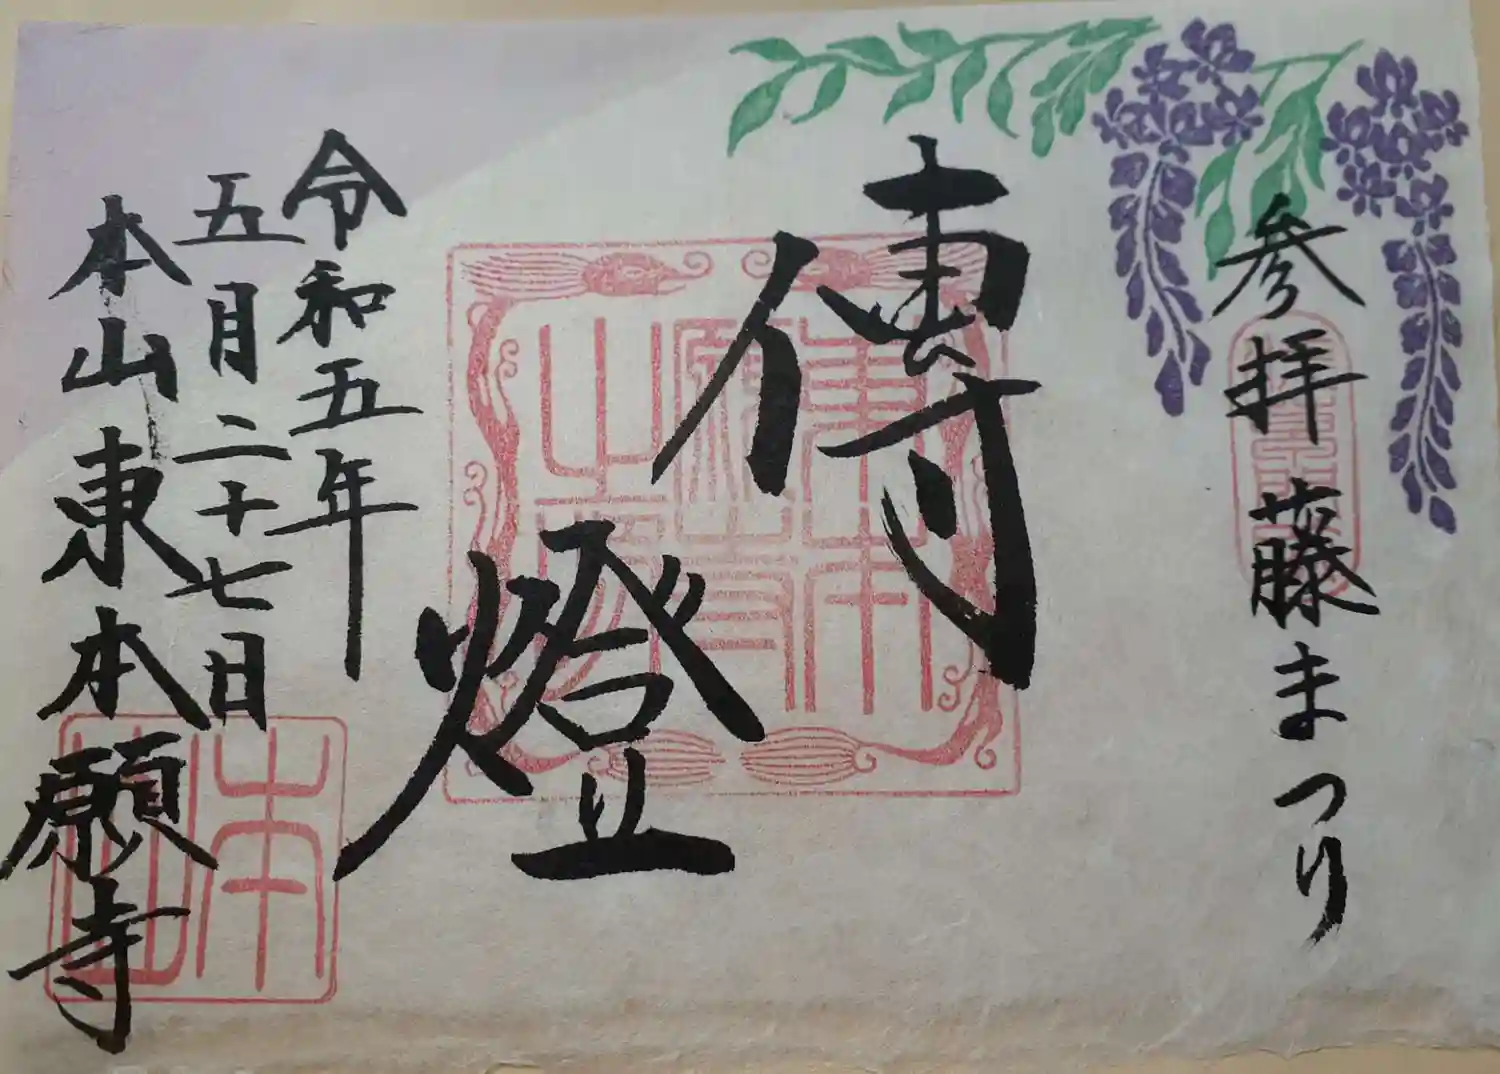 参拝 藤まつり
傳燈
令和五年
五月二十七日
本山東本願寺
本山